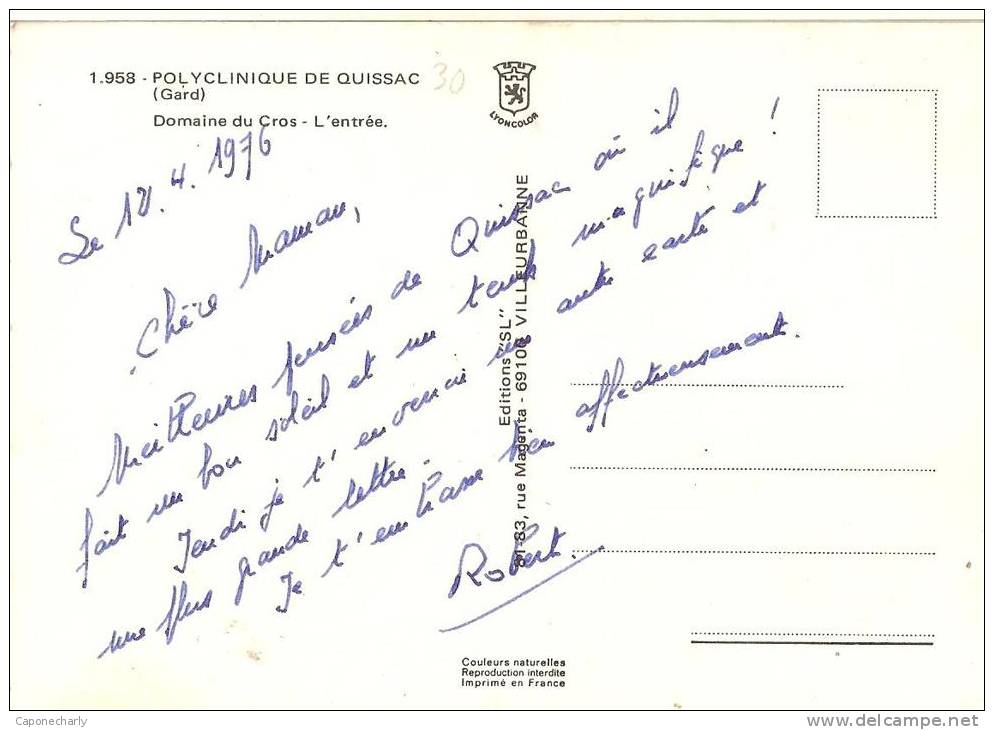 1.958 - POLYCLINIQUE DE QUISSAC
(Gard)
Domaine du Cros - L'entrée.
30
LYONCOLOR
Le 4. 1976
Chère Maman,
Meilleures pensées de Quissac où il
fait un bon soleil et un temps magnifique !
Jeudi je t'enverrai une autre carte et
une plus grande lettre.
Je t'embrasse bien affectueusement.
Robert.
Editions "SL"
81-83, rue Magenta - 69100 VILLEURBANNE
Couleurs naturelles
Reproduction interdite
Imprimé en France
Caponecharly
www.delcampe.net